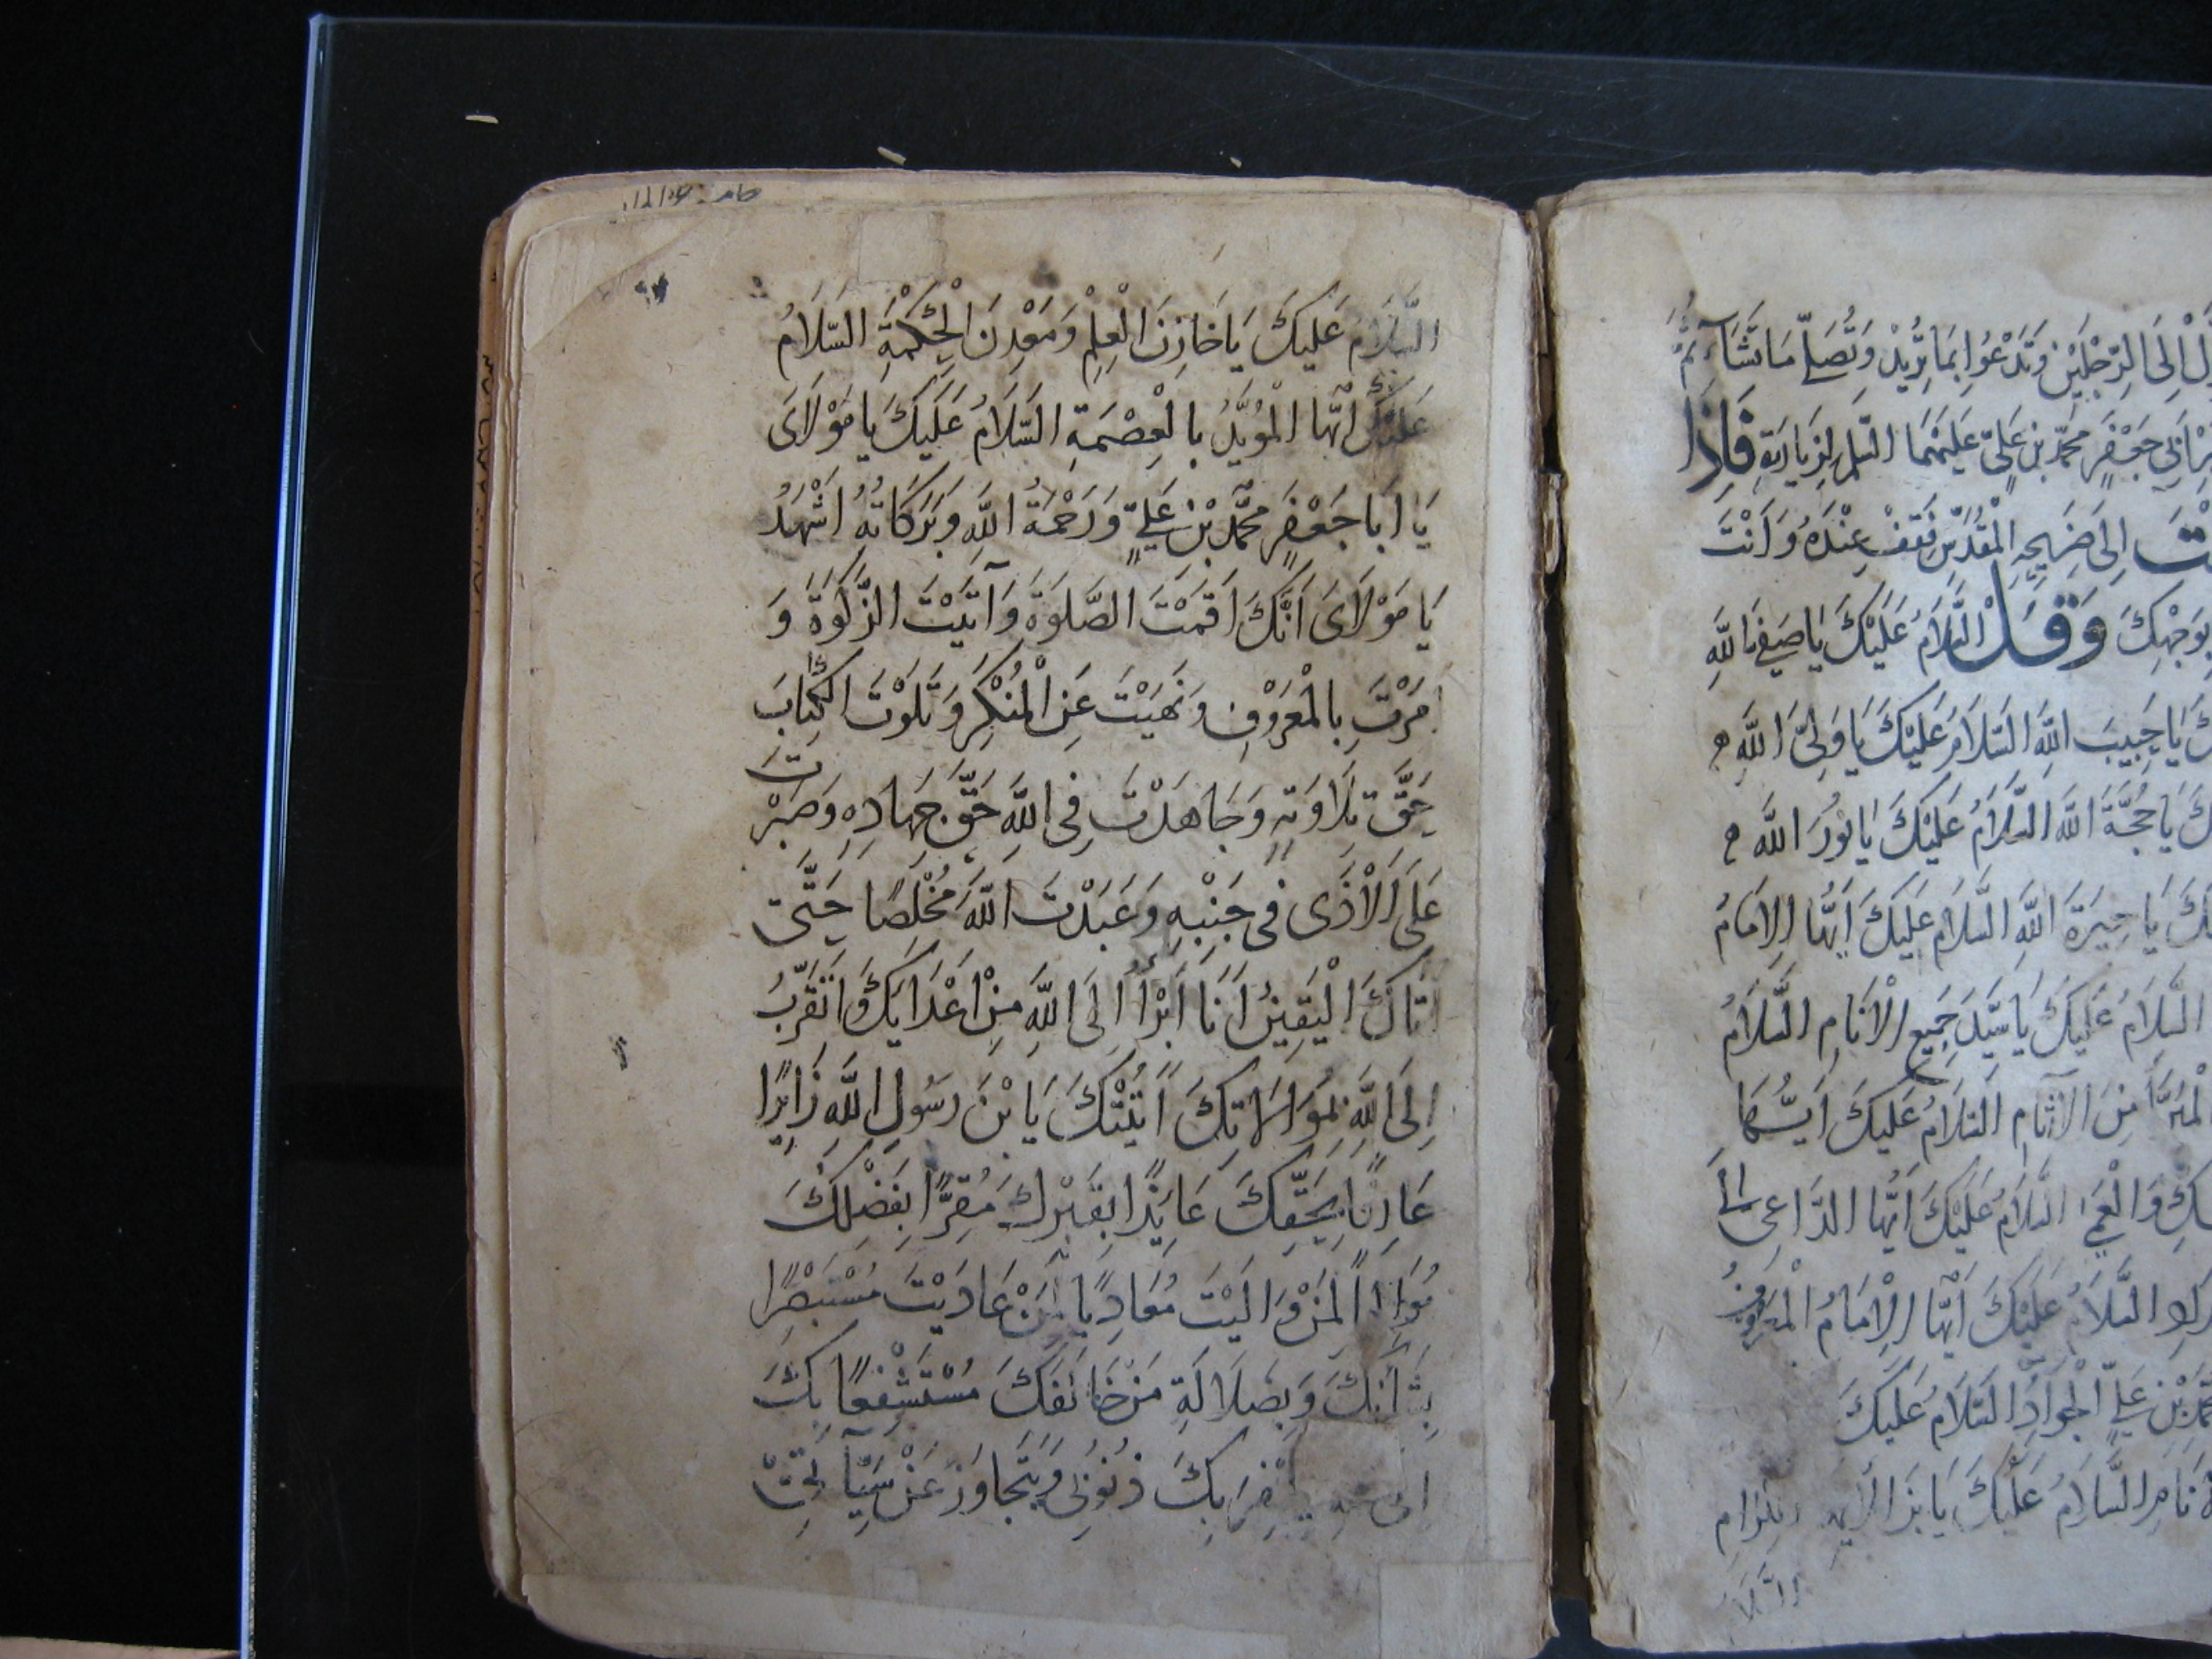 نزل الى الرجلين وتدعوا بما يريد وتصلّ ما تشاء ثم
ابي جعفر محمد بن علي عليهما السلم لزيارته فاذا
الى ضريحه المقدس فقف عنده وانت
بوجهك وقل السلام عليك يا صفي الله
يا حبيب الله السلام عليك يا ولي الله
يا حجة الله السلام عليك يا نور الله
يا خيرة الله السلام عليك ايها الامام
السلام عليك يا سيد جميع الانام السلام
المبرأ من الآثام السلام عليك ايها
والعمى السلام عليك ايها الداعي الى
السلام عليك ايها الامام المعروف
بن علي الجواد السلام عليك
السلام عليك يا بن
السلا
السَّلَامُ عَليكَ يَا خَازِنَ الْعِلْمِ وَمَعْدِنَ الْحِكْمَةِ السَّلَامُ
عَلَيْكَ اَيُّهَا الْمُؤَيَّدُ بِالْعِصْمَةِ السَّلَامُ عَلَيْكَ يَا مَوْلَايَ
يَا اَبَا جَعْفَرٍ مُحَمَّدَ بْنَ عَلِيٍّ وَرَحْمَةُ اللَّهِ وَبَرَكَاتُهُ اَشْهَدُ
يَا مَوْلَايَ اَنَّكَ اَقَمْتَ الصَّلَوةَ وَآتَيْتَ الزَّكَوةَ وَ
اَمَرْتَ بِالْمَعْرُوْفِ وَنَهَيْتَ عَنِ الْمُنْكَرِ وَتَلَوْتَ الكِتَابَ
حَقَّ تِلَاوَتِهِ وَجَاهَدْتَ فِي اللَّهِ حَقَّ جِهَادِهِ وَصَبَرْتَ
عَلَى الْاَذَى فِي جَنْبِهِ وَعَبَدْتَ اللَّهَ مُخْلِصًا حَتَّى
اَتَاكَ الْيَقِينُ اَنَا اَبْرَأُ اِلَى اللَّهِ مِنْ اَعْدَائِكَ وَاَتَقَرَّبُ
اِلَى اللَّهِ بِمُوَالَاتِكَ اَتَيْتُكَ يَا بْنَ رَسُولِ اللَّهِ زَائِرًا
عَارِفًا بِحَقِّكَ عَائِذًا بِقَبْرِكَ مُقِرًّا بِفَضْلِكَ
مُوَالِيًا لِمَنْ وَالَيْتَ مُعَادِيًا لِمَنْ عَادَيْتَ مُسْتَبْصِرًا
بِشَأنِكَ وَبِضَلَالَةِ مَنْ خَالَفَكَ مُسْتَشْفِعًا بِكَ
بِكَ ذُنُوبِي وَيَتَجَاوَزَ عَنْ سَيِّآتِي